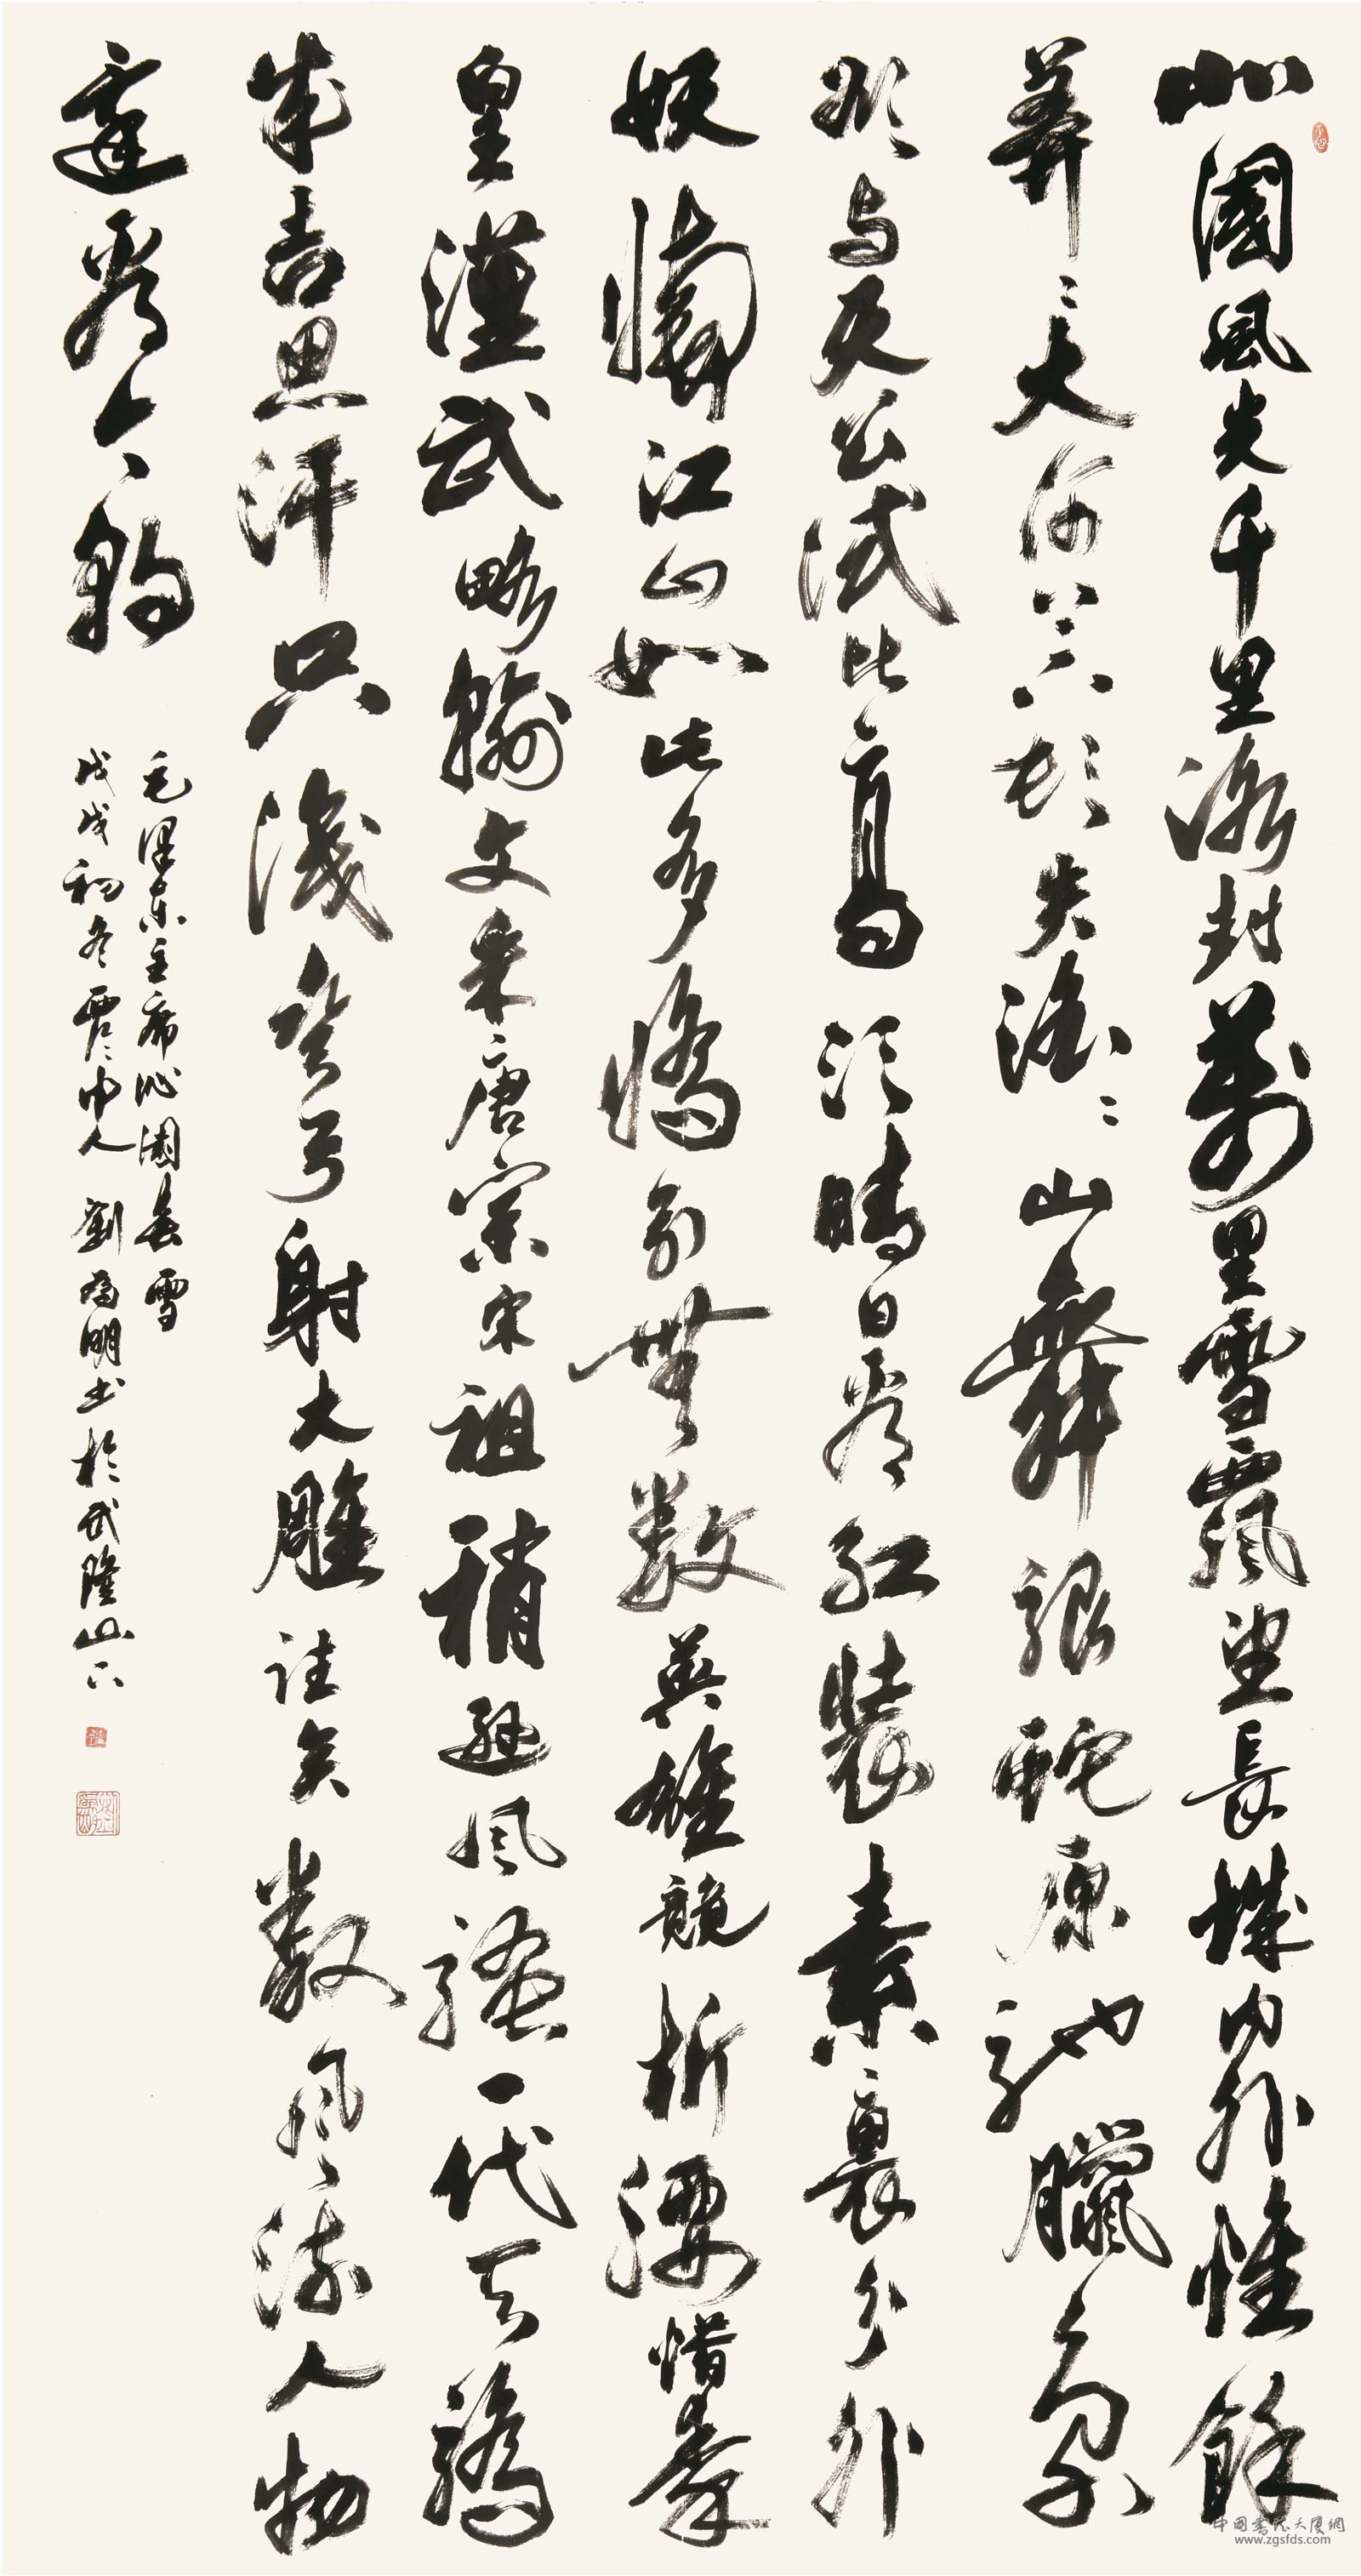 北國風光千里冰封萬里雪飄望長城內外惟餘
莽莽大河上下頓失滔滔山舞銀蛇原馳臘象
欲與天公試比高須晴日看紅裝素裹分外
妖嬈江山如此多嬌引無數英雄競折腰惜秦
皇漢武略輸文采唐宗宋祖稍遜風騷一代天驕
成吉思汗只識彎弓射大雕往矣數風流人物
還看今朝
毛澤東主席沁園春雪
戊戌初冬中人劉為明書於武隆山下
中國書法大廈網
www.zgsfds.com